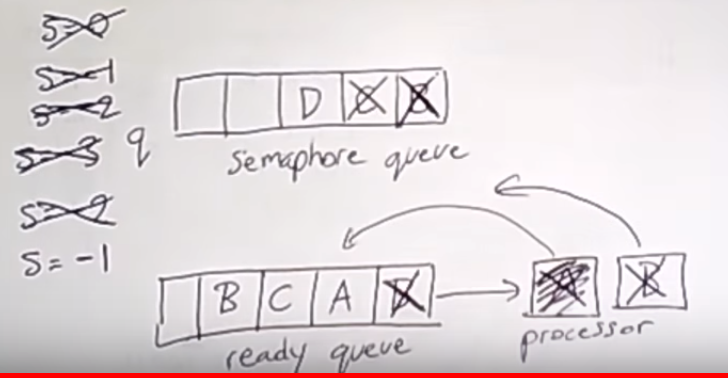 s=0
s=-1
s=-2
s=-3
s=-2
s=-1
q
D C B
semaphore queue
B C A D
ready queue
D
processor